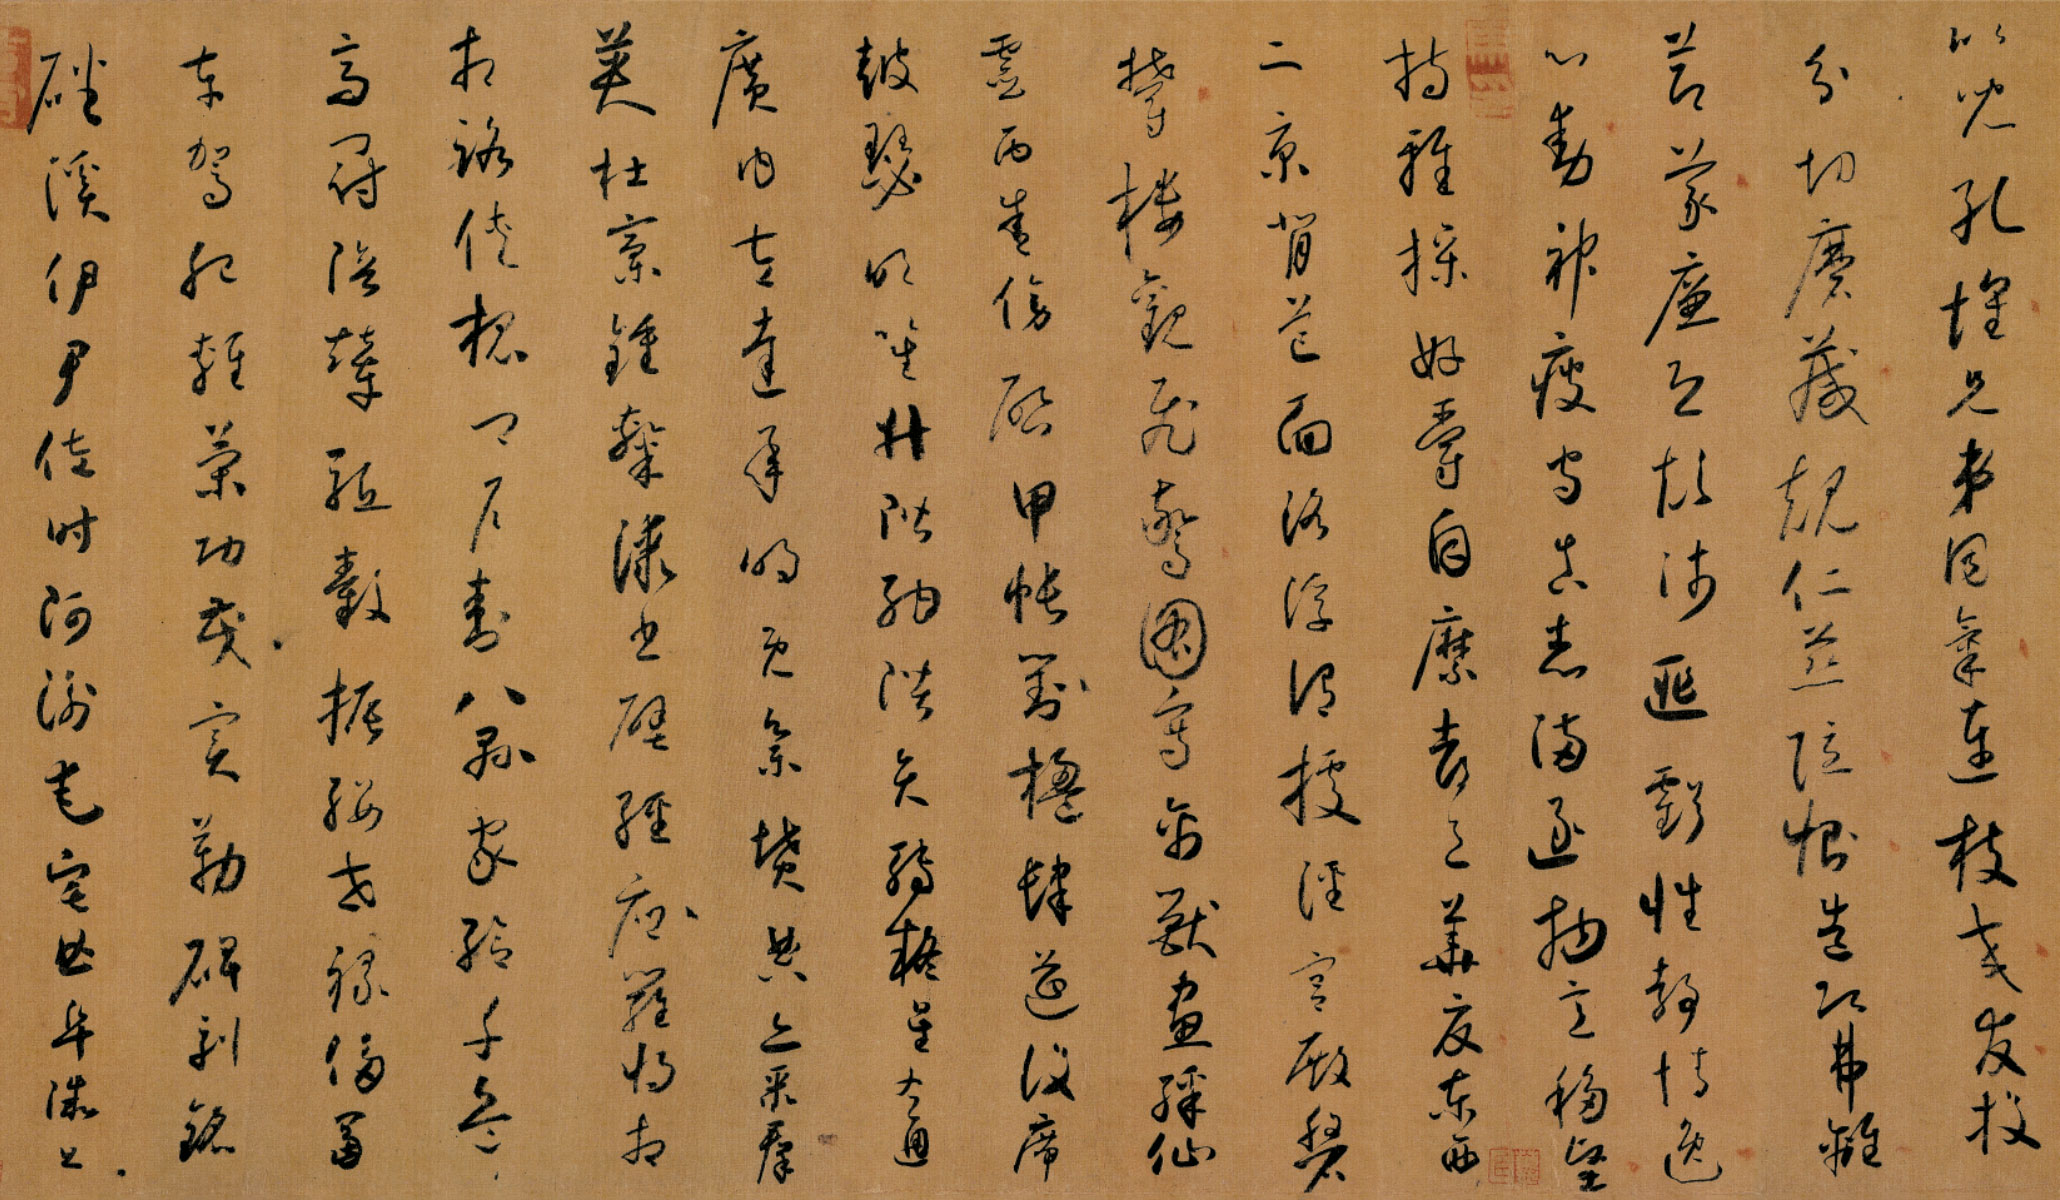 比兒孔懷兄弟同氣連枝交友投
分切磨箴規仁慈隱惻造次弗離
節義廉退顛沛匪虧性靜情逸
心動神疲守真志滿逐物意移堅
持雅操好爵自縻都邑華夏東西
二京背芒面洛浮渭據涇宮殿盤
鬱樓觀飛驚圖寫禽獸畫綵仙
靈丙舍傍啟甲帳對楹肆筵設席
鼓瑟吹笙升階納陛弁轉疑星右通
廣內左達承明既集墳典亦聚群
英杜稾鍾隸漆書壁經府羅將相
相路俠槐卿戶封八縣家給千兵
高冠陪輦驅轂振纓世祿侈富
車駕肥輕策功茂實勒碑刻銘
磻溪伊尹佐時阿衡奄宅曲阜微旦